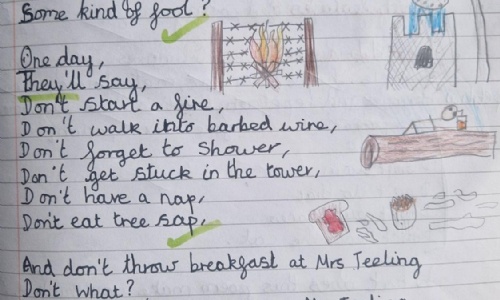 Some kind of fool?
One day,
They'll say,
Don't start a fire,
Don't walk into barbed wire,
Don't forget to shower,
Don't get stuck in the tower,
Don't have a nap,
Don't eat tree sap,
And don't throw breakfast at Mrs Teeling
Don't what?